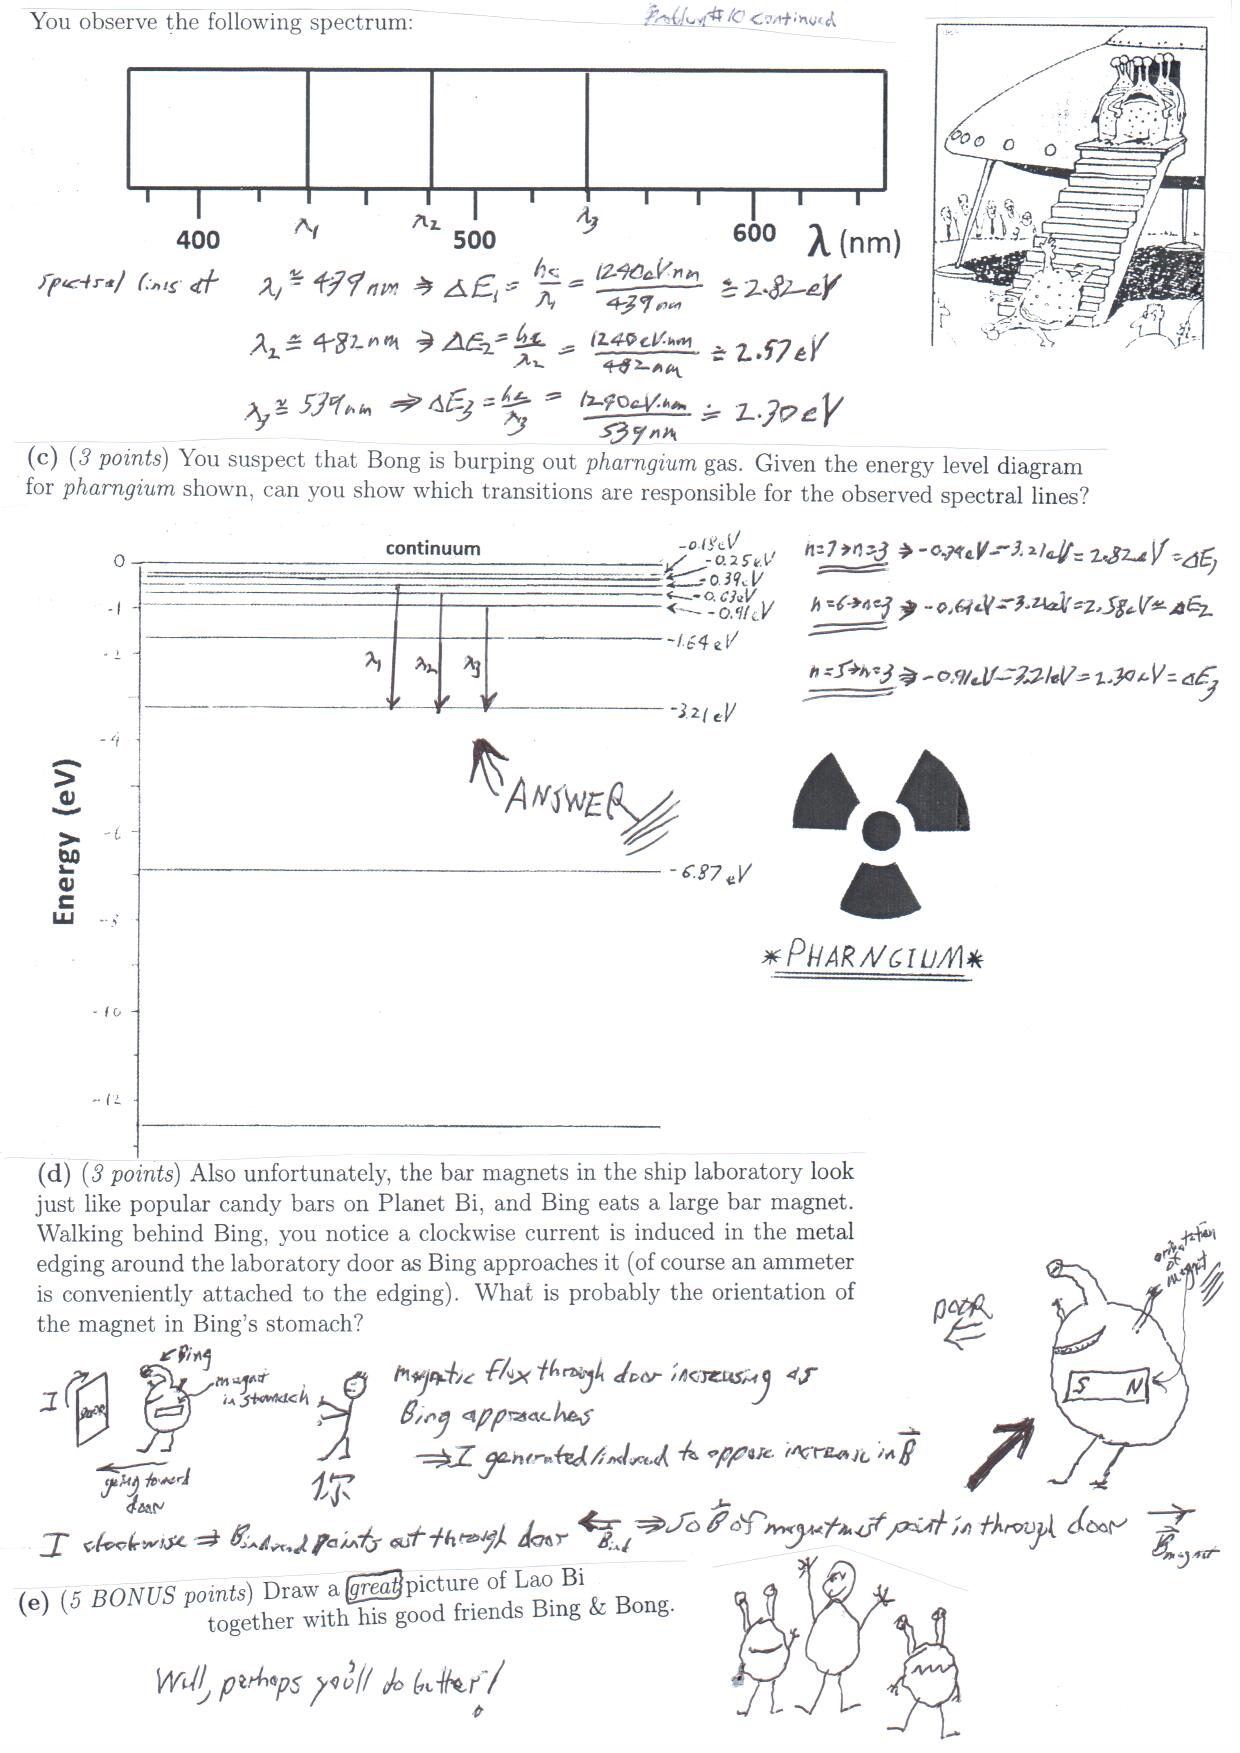 Problem #10 continued
You observe the following spectrum:
λ1 λ2 λ3
400 500 600 λ (nm)
spectral lines at λ1 ≅ 439 nm ⇒ ΔE1 = hc/λ1 = 1240eV·nm/439nm ≅ 2.82eV
λ2 ≅ 482nm ⇒ ΔE2 = hc/λ2 = 1240eV·nm/482nm ≅ 2.57eV
λ3 ≅ 539nm ⇒ ΔE3 = hc/λ3 = 1240eV·nm/539nm ≐ 2.30eV
(c) (3 points) You suspect that Bong is burping out pharngium gas. Given the energy level diagram
for pharngium shown, can you show which transitions are responsible for the observed spectral lines?
continuum
-0.18eV
-0.25eV
-0.39eV
-0.63eV
-0.91eV
-1.64eV
-3.21eV
-6.87eV
0
-1
-2
-4
-6
-8
-10
-12
Energy (eV)
λ1 λ2 λ3
ANSWER
n=7→n=3 ⇒ -0.39eV--3.21eV=2.82eV=ΔE1
n=6→n=3 ⇒ -0.63eV--3.21eV=2.58eV≅ΔE2
n=5→n=3 ⇒ -0.91eV--3.21eV=2.30eV=ΔE3
*PHARNGIUM*
(d) (3 points) Also unfortunately, the bar magnets in the ship laboratory look
just like popular candy bars on Planet Bi, and Bing eats a large bar magnet.
Walking behind Bing, you notice a clockwise current is induced in the metal
edging around the laboratory door as Bing approaches it (of course an ammeter
is conveniently attached to the edging). What is probably the orientation of
the magnet in Bing's stomach?
orientation
of
magnet
DOOR
S N
Bing
magnet
in stomach
I
DOOR
going toward
door
你
magnetic flux through door increasing as
Bing approaches
⇒ I generated/induced to oppose increase in B
I clockwise ⇒ Binduced points out through door ← Bind ⇒ so B of magnet must point in through door → Bmagnet
(e) (5 BONUS points) Draw a great picture of Lao Bi
together with his good friends Bing & Bong.
Well, perhaps you'll do better!